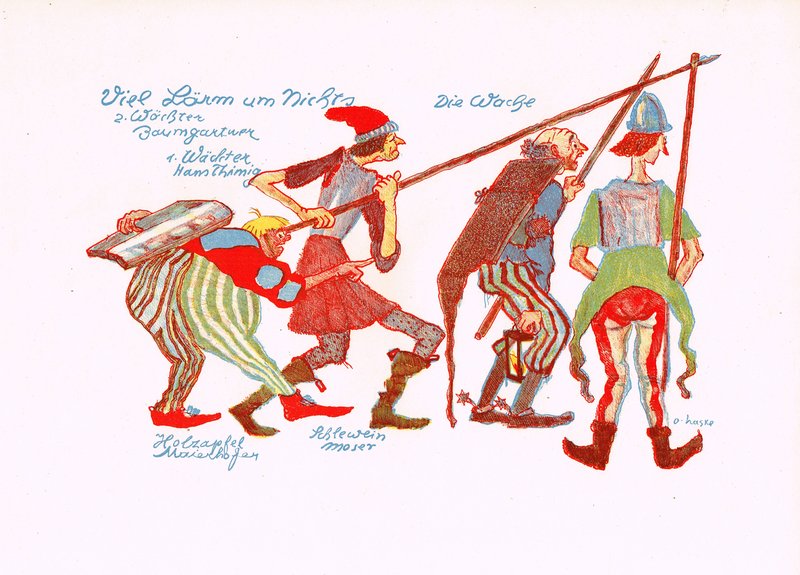 Viel Lärm um Nichts
Die Wache
2. Wächter
Baumgartner
1. Wächter
Hans Thimig
Holzapfel
Maierhofer
Schlewein
Moser
O. Laske